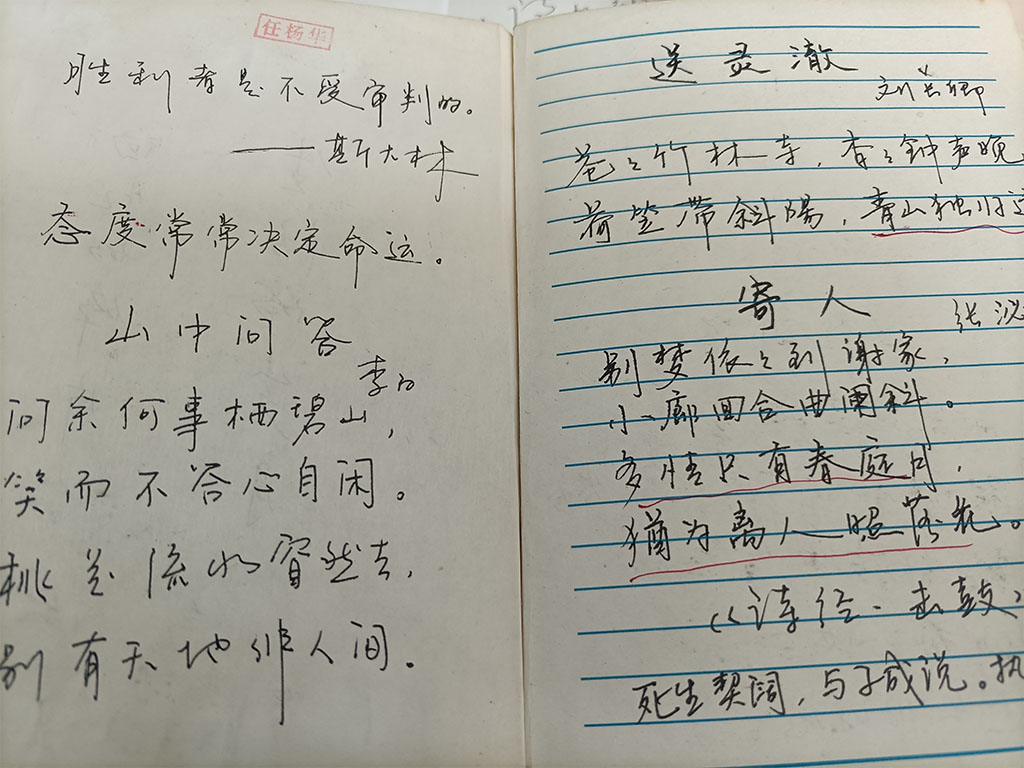 任杨华
胜利者是不受审判的。
——斯大林
态度常常决定命运。
山中问答
李白
问余何事栖碧山，
笑而不答心自闲。
桃花流水窅然去，
别有天地非人间。
送灵澈
刘长卿
苍々竹林寺，杳々钟声晚
荷笠带斜陽，青山独归远
寄人
张泌
别梦依々到谢家，
小廊回合曲阑斜。
多情只有春庭月，
犹为离人照落花。
《诗经·击鼓》
死生契阔，与子成说。执